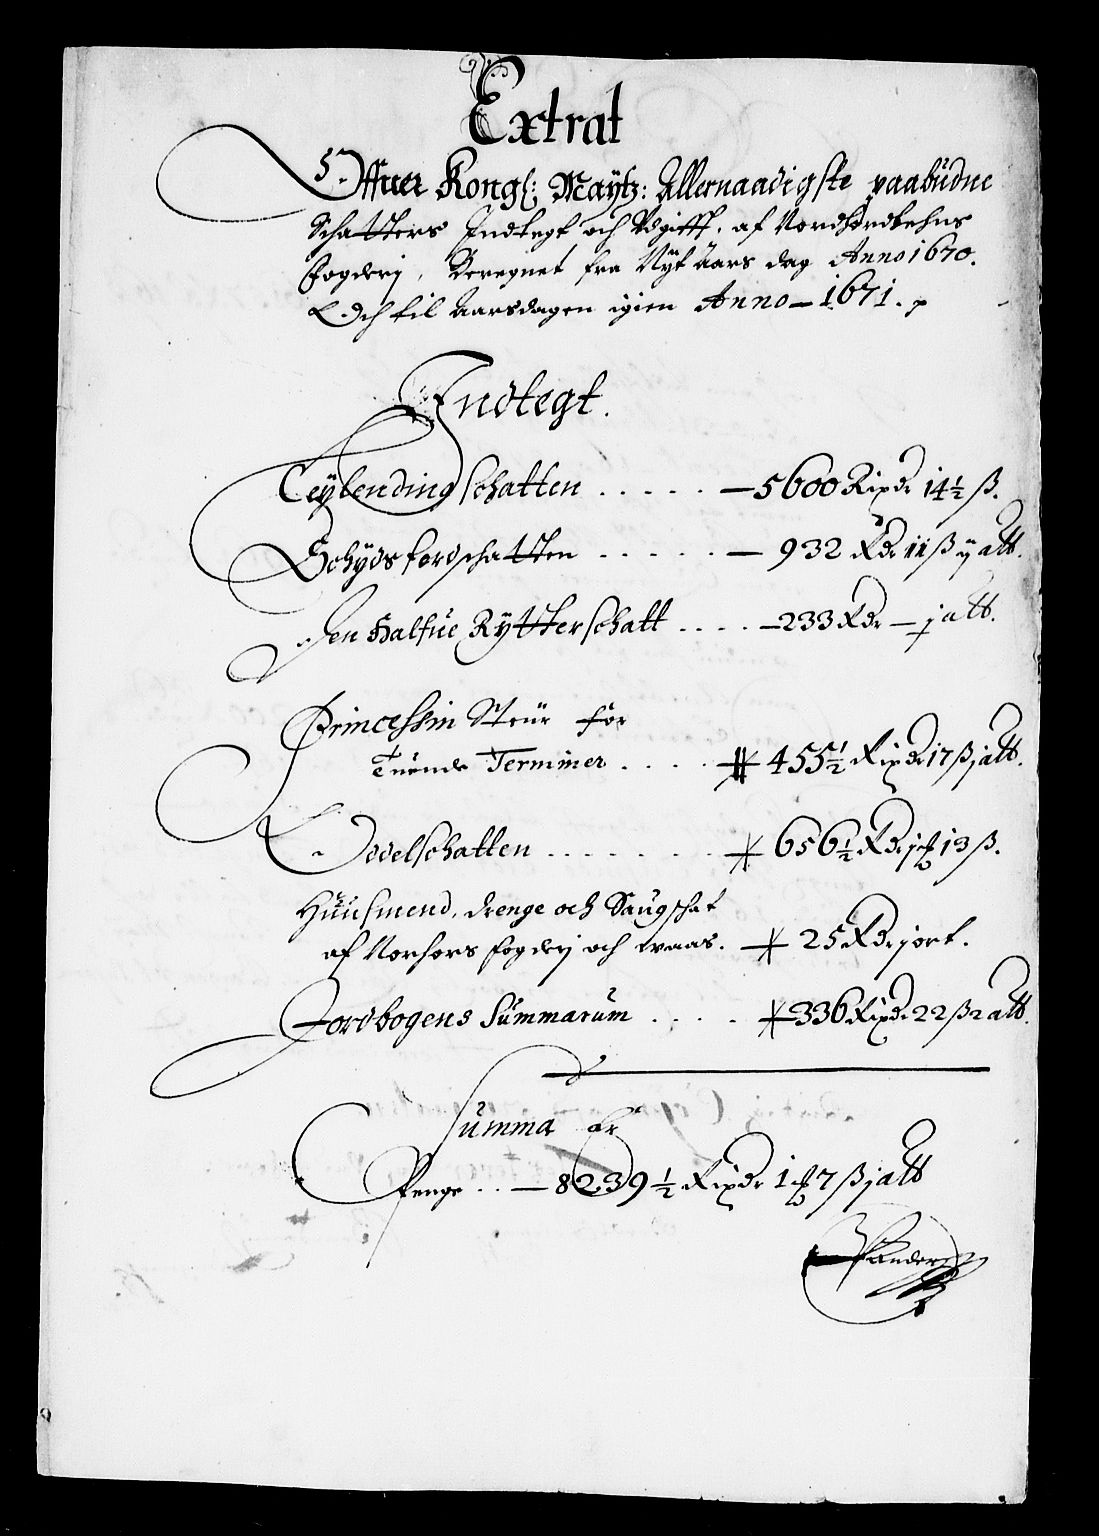 Extrat
5. Offuer Kongl: Maÿtz: Allernaadigste paabüdne
Schatters Indtegt och Vdgifft, af Nordhordlehns
fogderj, Beregnet fra Nÿt Aars dag Anno 1670.
Och til Aarsdagen igien Anno 1671. p
Indtegt.
Leÿlending schatten . . . . . — 5600 Rixdr 14½ ß.
schatten . . . . . — 932 Rdr 11 ß ij alb.
Den Halfue Rÿtterschatt . . . . — 233 Rdr — j alb.
Princessin Steür for
Tuende Terminer . . . . 455½ Rixdr 17 ß j alb.
Oddelschatten . . . . . . . 656½ Rdr j ꝶ 13 ß.
Huusmend, drenge och Saugschat
af Norhors fogderj och waas. 25 Rdr j ort.
Jordbogens Summarum . . . . 336 Rixdr 22 ß 2 alb.
Summa Er
Penge . . — 8239½ Rixdr 1 ꝶ 7 ß j alb